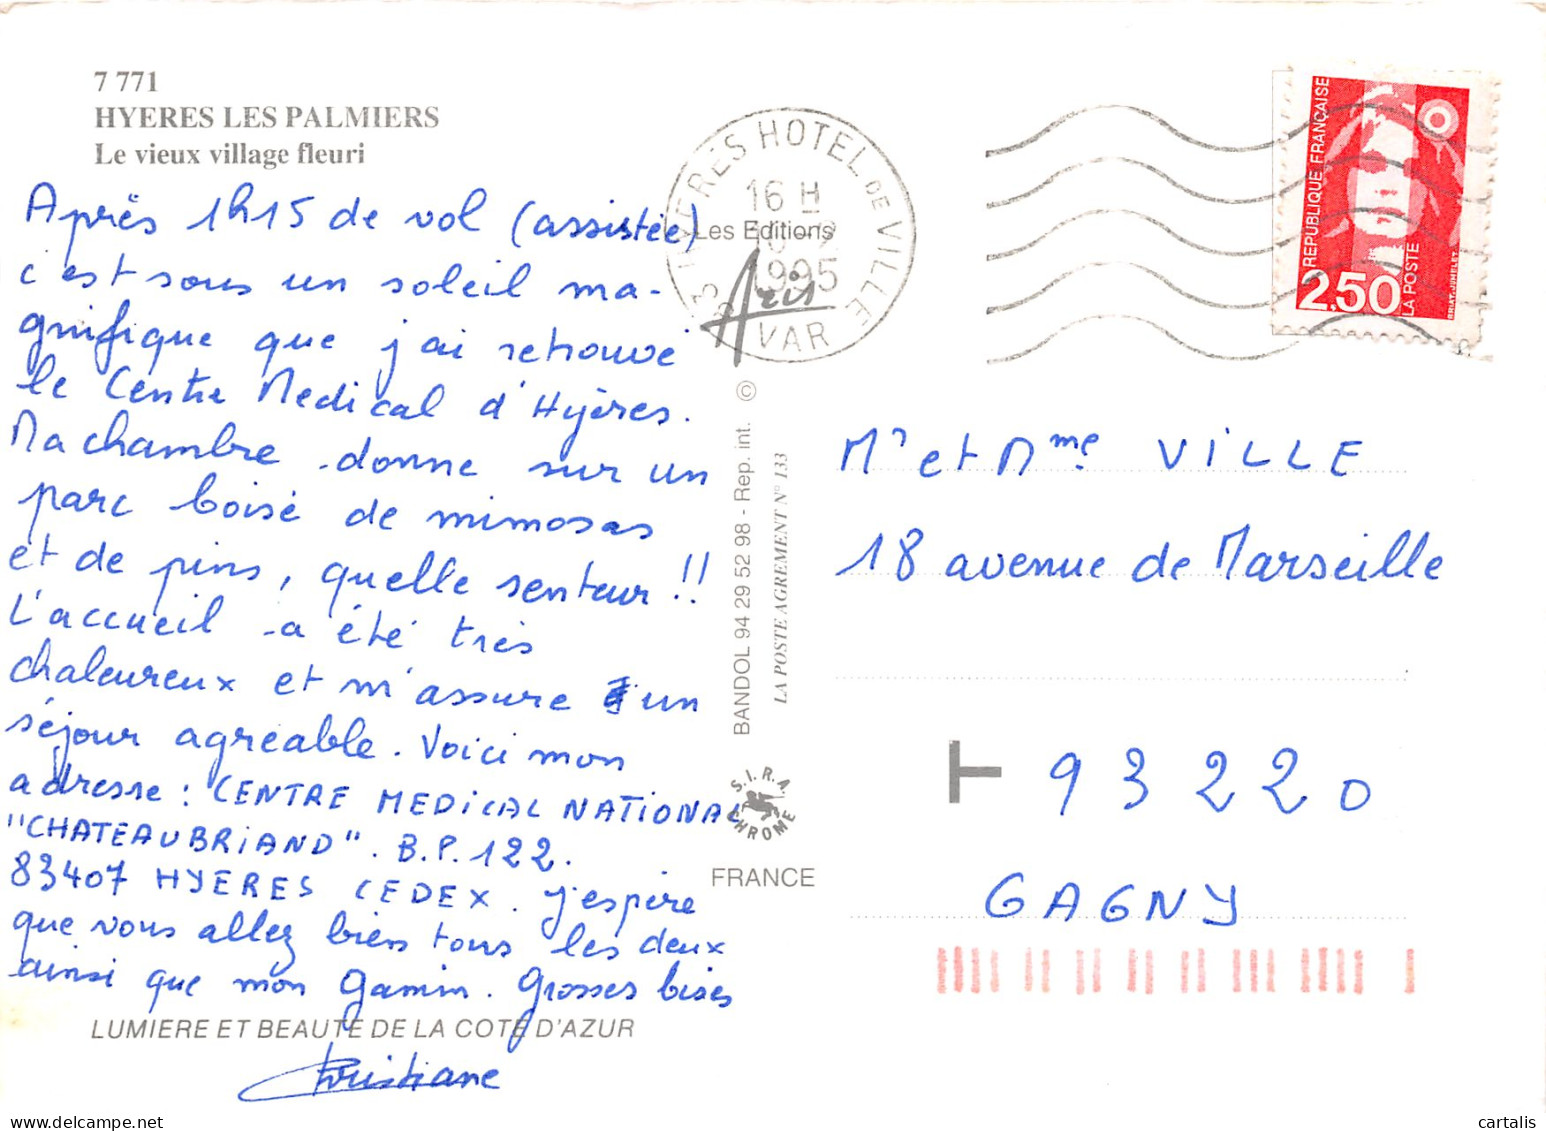 7 771
HYERES LES PALMIERS
Le vieux village fleuri
Après 1h15 de vol (assistée)
c'est sous un soleil ma-
gnifique que j'ai retrouvé
le Centre Medical d'Hyères.
Ma chambre donne sur un
parc boisé de mimosas
et de pins, quelle senteur !!
L'accueil a été très
chaleureux et m'assure un
séjour agréable. Voici mon
adresse : CENTRE MEDICAL NATIONAL
"CHATEAUBRIAND". B.P. 122.
83407 HYERES CEDEX. J'espère
que vous allez bien tous les deux
ainsi que mon Gamin. Grosses bises
LUMIERE ET BEAUTE DE LA COTE D'AZUR
Christiane
HYERES HOTEL DE VILLE
16 H
1995
VAR
Les Editions
Aris
BANDOL 94 29 52 98 - Rep. int. ©
LA POSTE AGREMENT N° 133
S.I.R.A.
CHROME
FRANCE
REPUBLIQUE FRANÇAISE
2,50
LA POSTE
BRIAT.JUMELET
Mr et Mme VILLE
18 avenue de Marseille
93220
GAGNY
cartalis